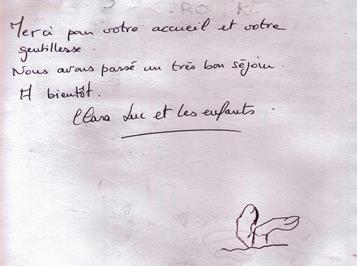 Merci pour votre accueil et votre
gentillesse.
Nous avons passé un très bon séjour.
A bientôt.
Clara Luc et les enfants.